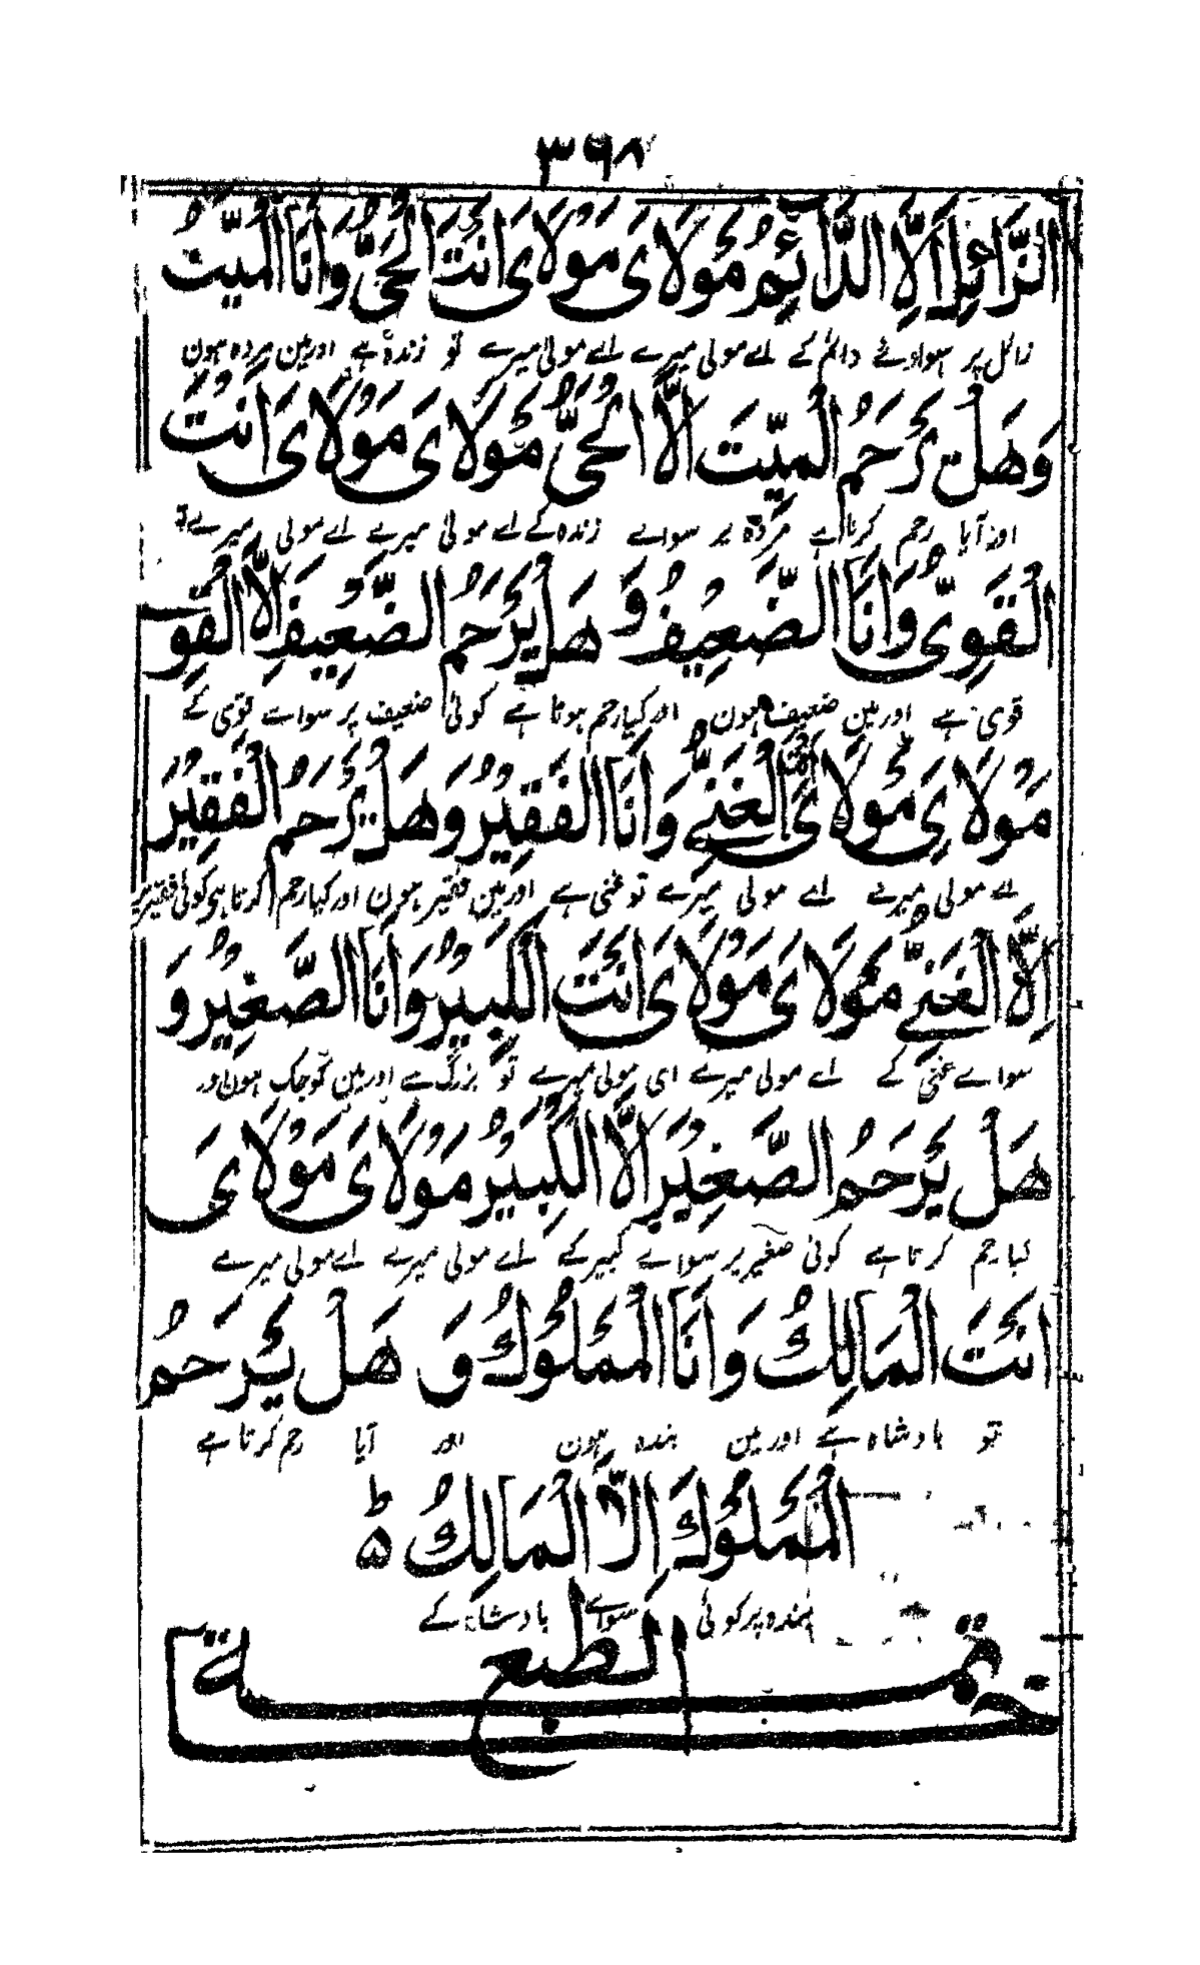 ۳۶۸
الزَّائِلَ اِلَّا الدَّائِمُ مَوْلَايَ مَوْلَايَ اَنْتَ الْحَيُّ وَاَنَا الْمَيِّتُ
زائل پر سواے دائم کے اے مولی میرے اے مولیٰ میرے تو زندہ ہے اور مین مردہ ہون
وَهَلْ يَرْحَمُ الْمَيِّتَ اِلَّا الْحَيُّ مَوْلَايَ مَوْلَايَ اَنْتَ
اور آیا رحم کرتا ہے مردہ پر سواے زندہ کے اے مولیٰ میرے اے مولی میرے تو
الْقَوِيُّ وَاَنَا الضَّعِيْفُ وَهَلْ يَرْحَمُ الضَّعِيْفَ اِلَّا الْقَوِيُّ
قوی ہے اور مین ضعیف ہون اور کیا رحم ہوتا ہے کوئی ضعیف پر سواے قوی کے
مَوْلَايَ مَوْلَايَ اَنْتَ الْغَنِيُّ وَاَنَا الْفَقِيْرُ وَهَلْ يَرْحَمُ الْفَقِيْرَ
اے مولی میرے اے مولی میرے تو غنی ہے اور مین فقیر ہون اور کیا رحم کرتا ہو کوئی فقیر پر
اِلَّا الْغَنِيُّ مَوْلَايَ مَوْلَايَ اَنْتَ الْكَبِيْرُ وَاَنَا الصَّغِيْرُ وَ
سواے غنی کے اے مولی میرے ای مولی میرے تو بزرگ ہے اور مین کوچک ہون اور
هَلْ يَرْحَمُ الصَّغِيْرَ اِلَّا الْكَبِيْرُ مَوْلَايَ مَوْلَايَ
کیا رحم کرتا ہے کوئی صغیر پر سواے کبیر کے اے مولی میرے اے مولی میرے
اَنْتَ الْمَالِكُ وَاَنَا الْمَمْلُوْكُ وَ هَلْ يَرْحَمُ
تو بادشاہ ہے اور مین بندہ ہون اور آیا رحم کرتا ہے
الْمَمْلُوْكَ اِلَّا الْمَالِكُ ۵ ط
بندہ پر کوئی سواے بادشاہ کے
خاتمة الطبع